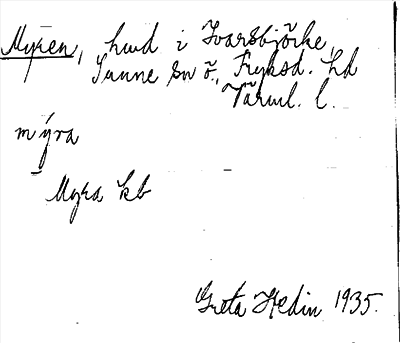 Myren, hmd i Ivarsbjörke,
Sunne sn ö., Fryksd. hd
Värml. l.
mýra
Myra kb
Greta Hedin 1935.